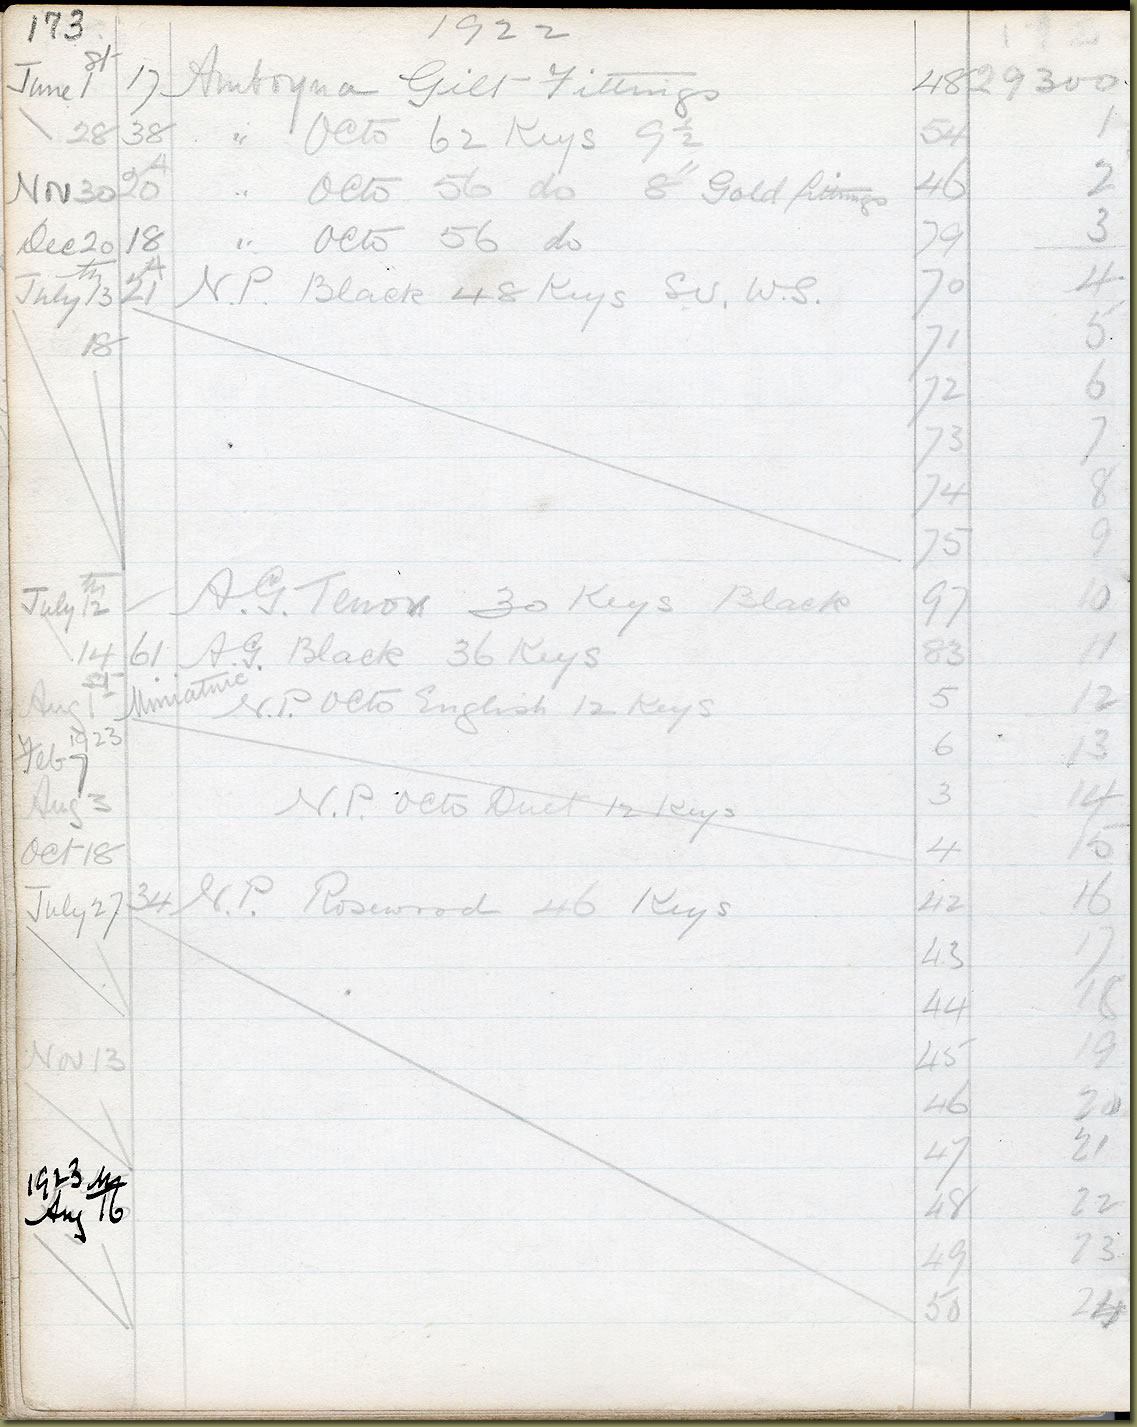 173 1922
June 1st 17 Amboyna Gilt Fittings 48 29300
28 38 " Octo 62 Keys 9½ 54 1
Nov 30 20A " Octo 56 do 8" Gold fittings 46 2
Dec 20 18 " Octo 56 do 79 3
July 13th 21A N.P. Black 48 Keys S.V. W.S. 70 4
18 71 5
72 6
73 7
74 8
75 9
July 12th A.G. Tenor 30 Keys Black 97 10
14 61 A.G. Black 36 Keys 83 11
Aug 1st Miniature N.P. Octo English 12 Keys 5 12
1923
Feb 7 6 13
Aug 3 N.P. Octo Duet 12 Keys 3 14
Oct 18 4 15
July 27 34 N.P. Rosewood 46 Keys 42 16
43 17
44 18
Nov 13 45 19
46 20
47 21
1923
Aug 16th 48 22
49 23
50 24